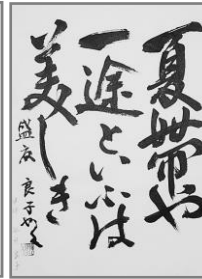 夏帯や
一途といふは
美しき
盛夏 良子かく